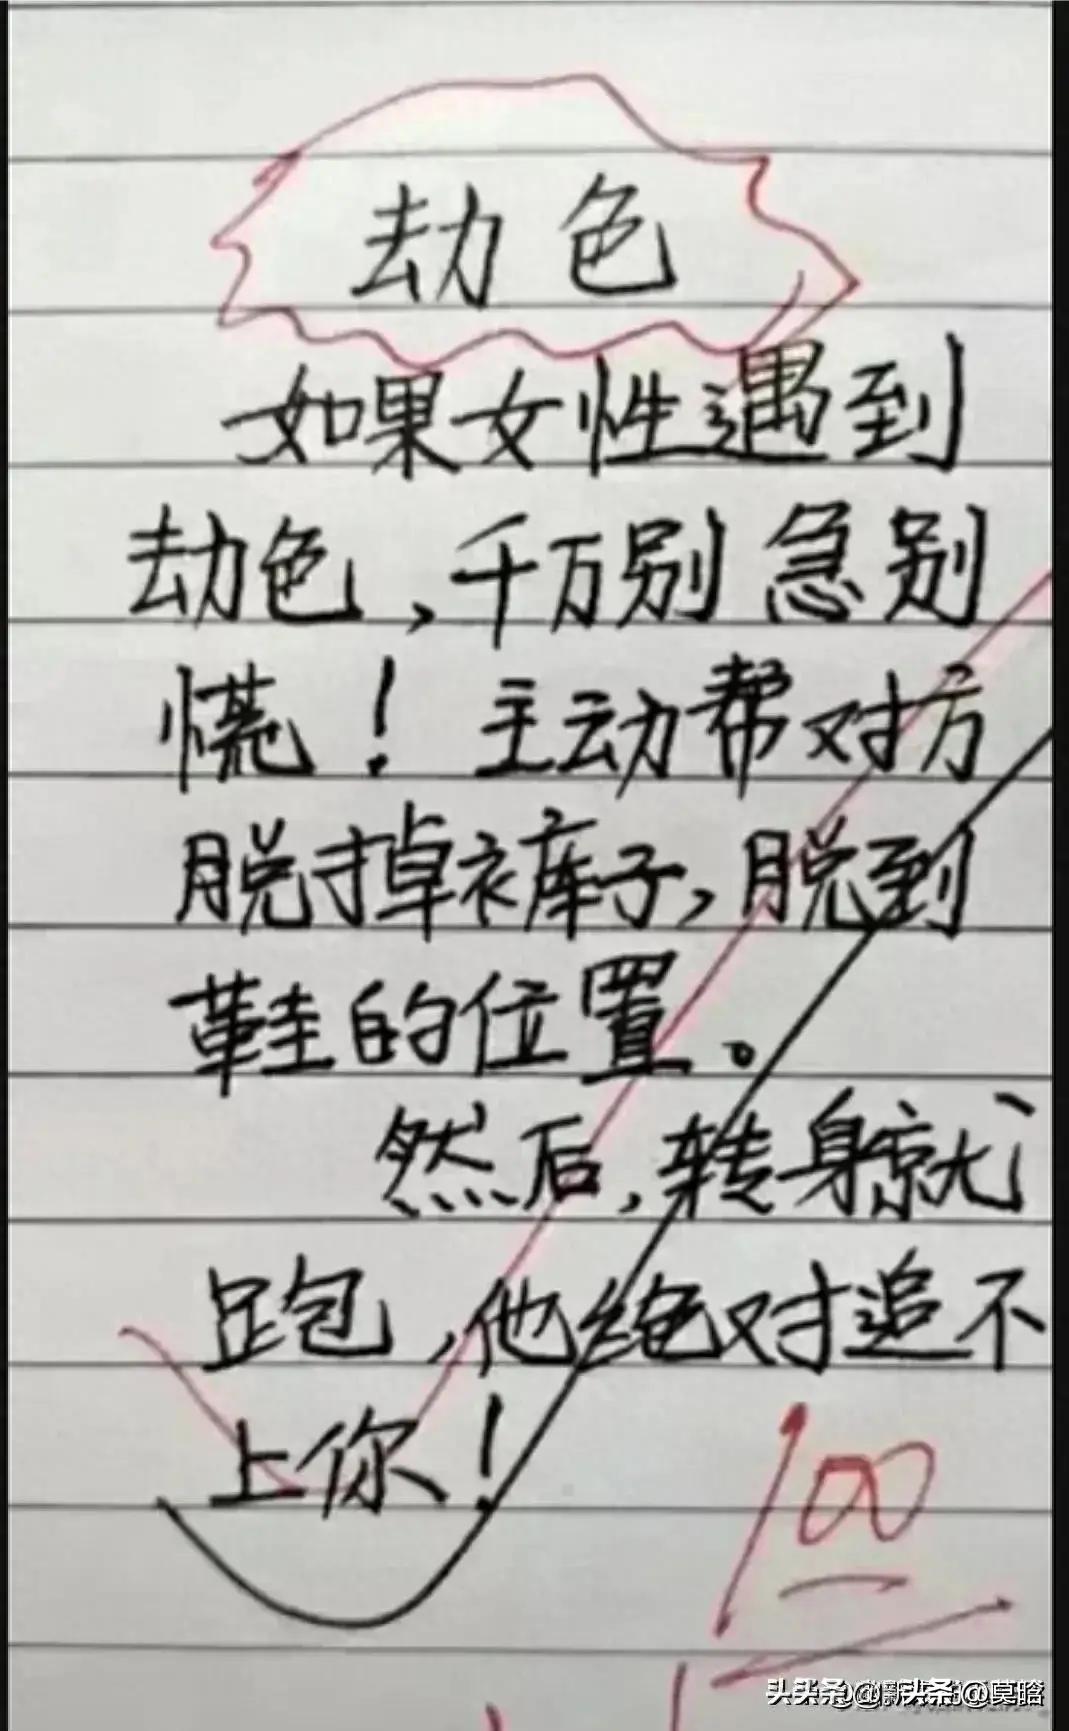 劫色
如果女性遇到
劫色，千万别急别
慌！主动帮对方
脱掉裤子，脱到
鞋的位置。
然后，转身就
跑，他绝对追不
上你！
100
头条 @莫晗